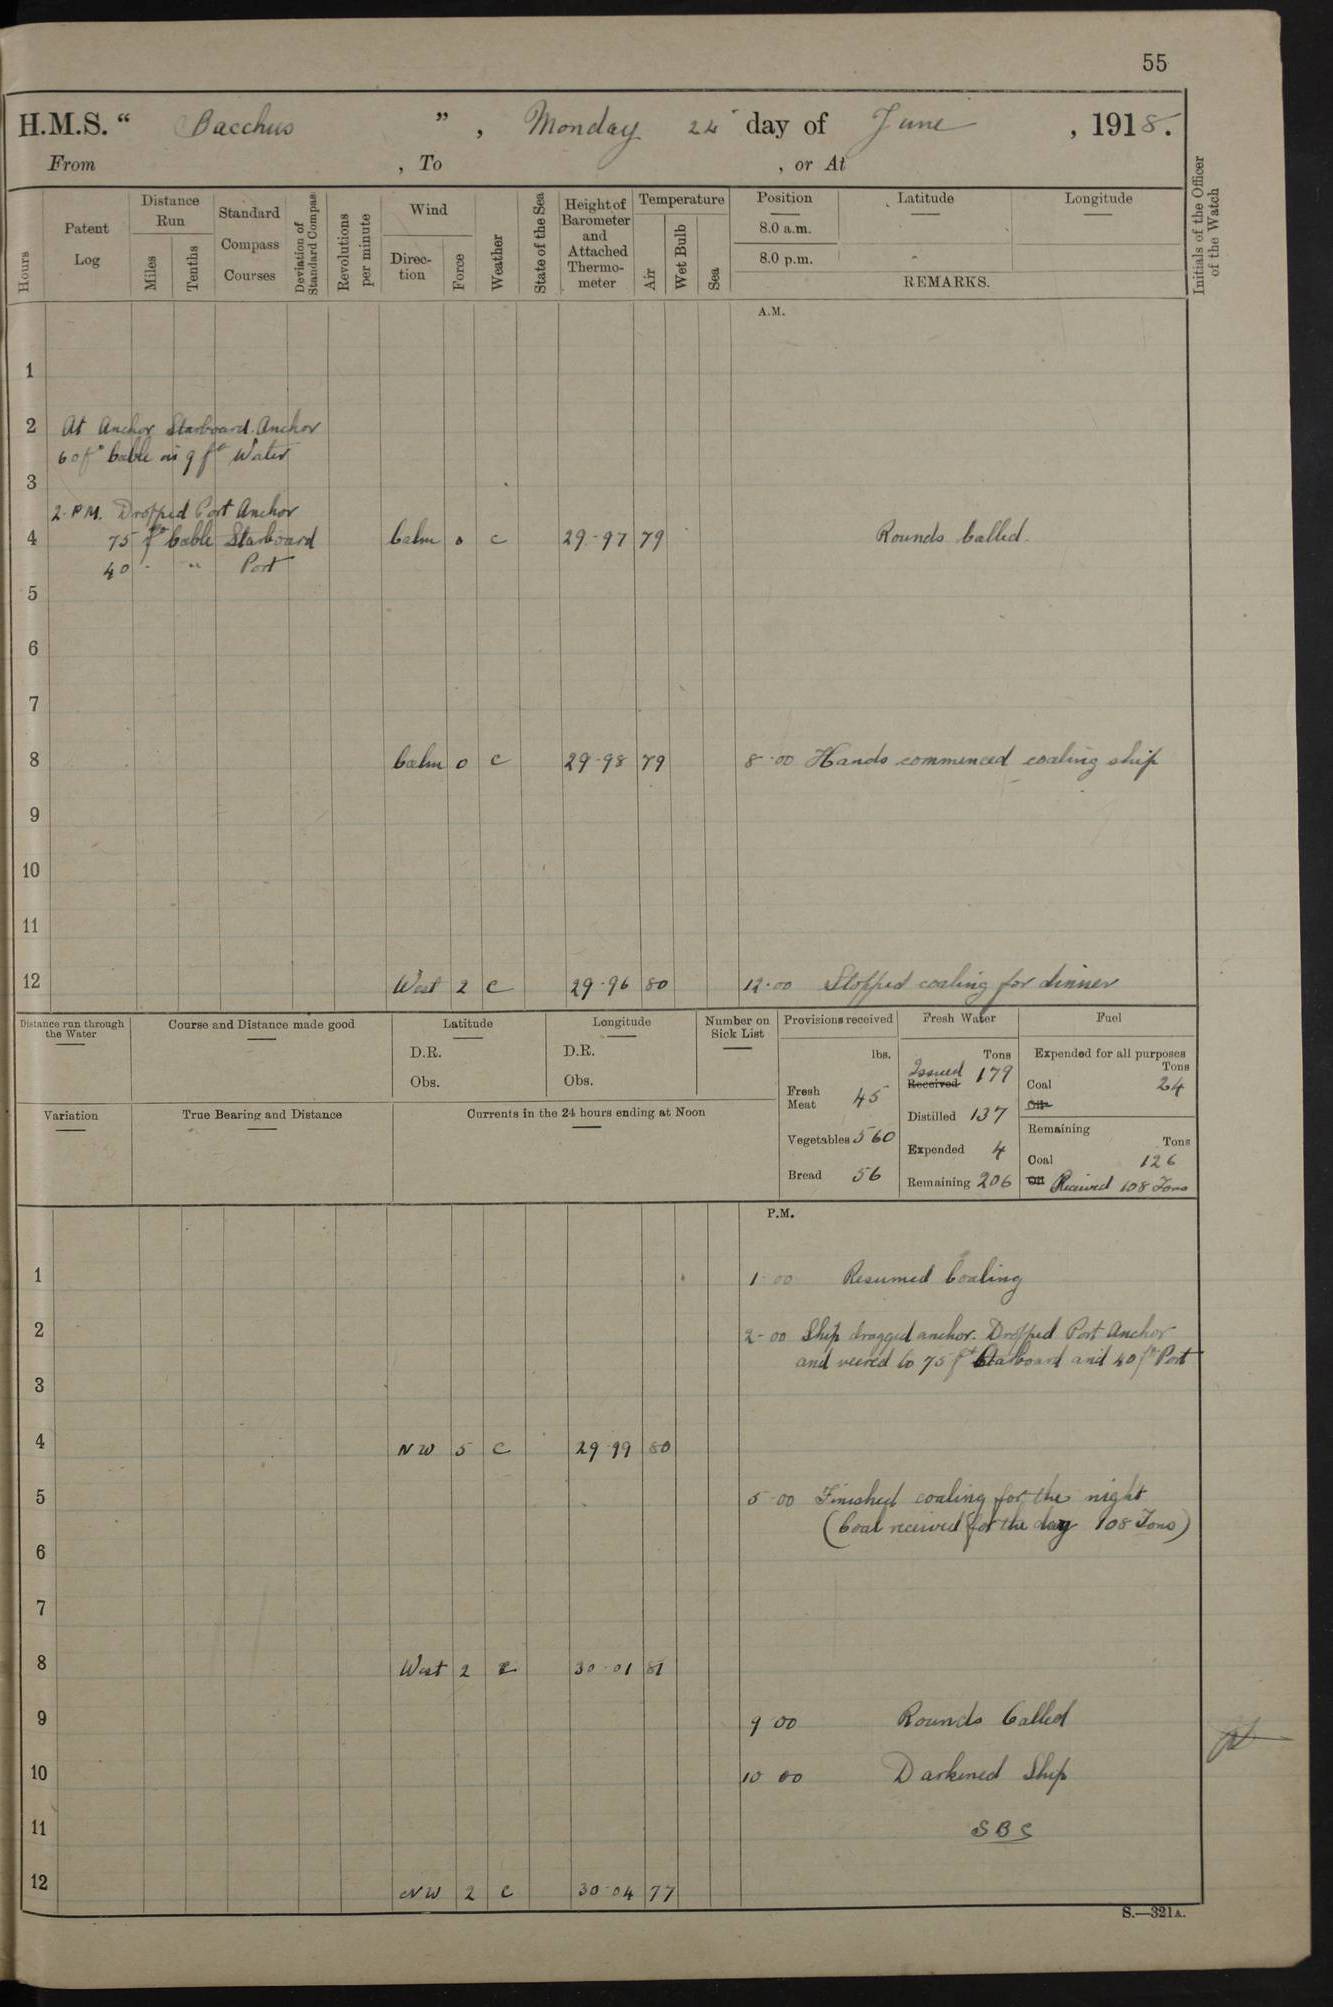 55
H.M.S. “ Bacchus ” , Monday 24 day of June , 1918.
From , To , or At
Hours
Patent Log
Distance Run
Miles
Tenths
Standard Compass Courses
Deviation of Standard Compass
Revolutions per minute
Wind
Direction
Force
Weather
State of the Sea
Height of Barometer and Attached Thermometer
Temperature
Air
Wet Bulb
Sea
Position
8.0 a.m.
8.0 p.m.
Latitude
Longitude
REMARKS.
Initials of the Officer of the Watch
A.M.
1
2 At Anchor Starboard Anchor
60 fm Cable in 9 fm Water
3
2. P.M. Dropped Port Anchor
4 75 fm Cable Starboard Calm 0 c 29-97 79 Rounds Called.
40 " " Port
5
6
7
8 Calm 0 c 29-98 79 8-00 Hands commenced coaling ship
9
10
11
12 West 2 c 29-96 80 12-00 Stopped coaling for dinner
Distance run through the Water
Course and Distance made good
Latitude
D.R.
Obs.
Longitude
D.R.
Obs.
Number on Sick List
Variation
True Bearing and Distance
Currents in the 24 hours ending at Noon
Provisions received
lbs.
Fresh Meat 45
Vegetables 560
Bread 56
Fresh Water
Tons
Issued 179
Received
Distilled 137
Expended 4
Remaining 206
Fuel
Expended for all purposes
Tons
Coal 24
Oil
Remaining
Tons
Coal 126
Oil Received 108 Tons
P.M.
1 1 00 Resumed Coaling
2 2-00 Ship dragged anchor. Dropped Port Anchor
and veered to 75 fm Starboard and 40 fm Port
3
4 NW 5 c 29 99 80
5 5 00 Finished coaling for the night
(Coal received for the day 108 Tons)
6
7
8 West 2 c 30-01 81
9 9 00 Rounds Called
10 10 00 Darkened Ship
11 SBS
12 NW 2 c 30 04 77
S.—321A.